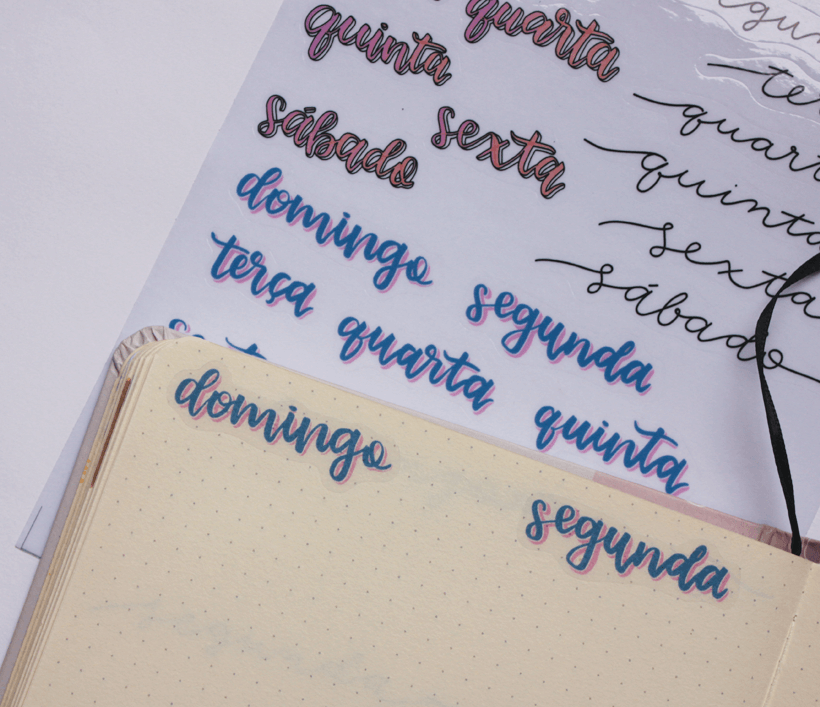 quarta
quinta
sábado
sexta
domingo
terça
segunda
quarta
quinta
quinta
sexta
sábado
domingo
segunda